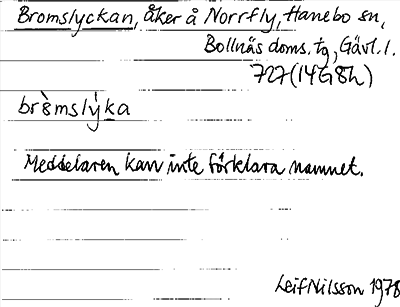 Bromslyckan, åker å Norrfly, Hanebo sn,
Bollnäs doms. tg, Gävl. l.
727 (14G8h)
bròmslỳka
Meddelaren kan inte förklara namnet.
Leif Nilsson 1978